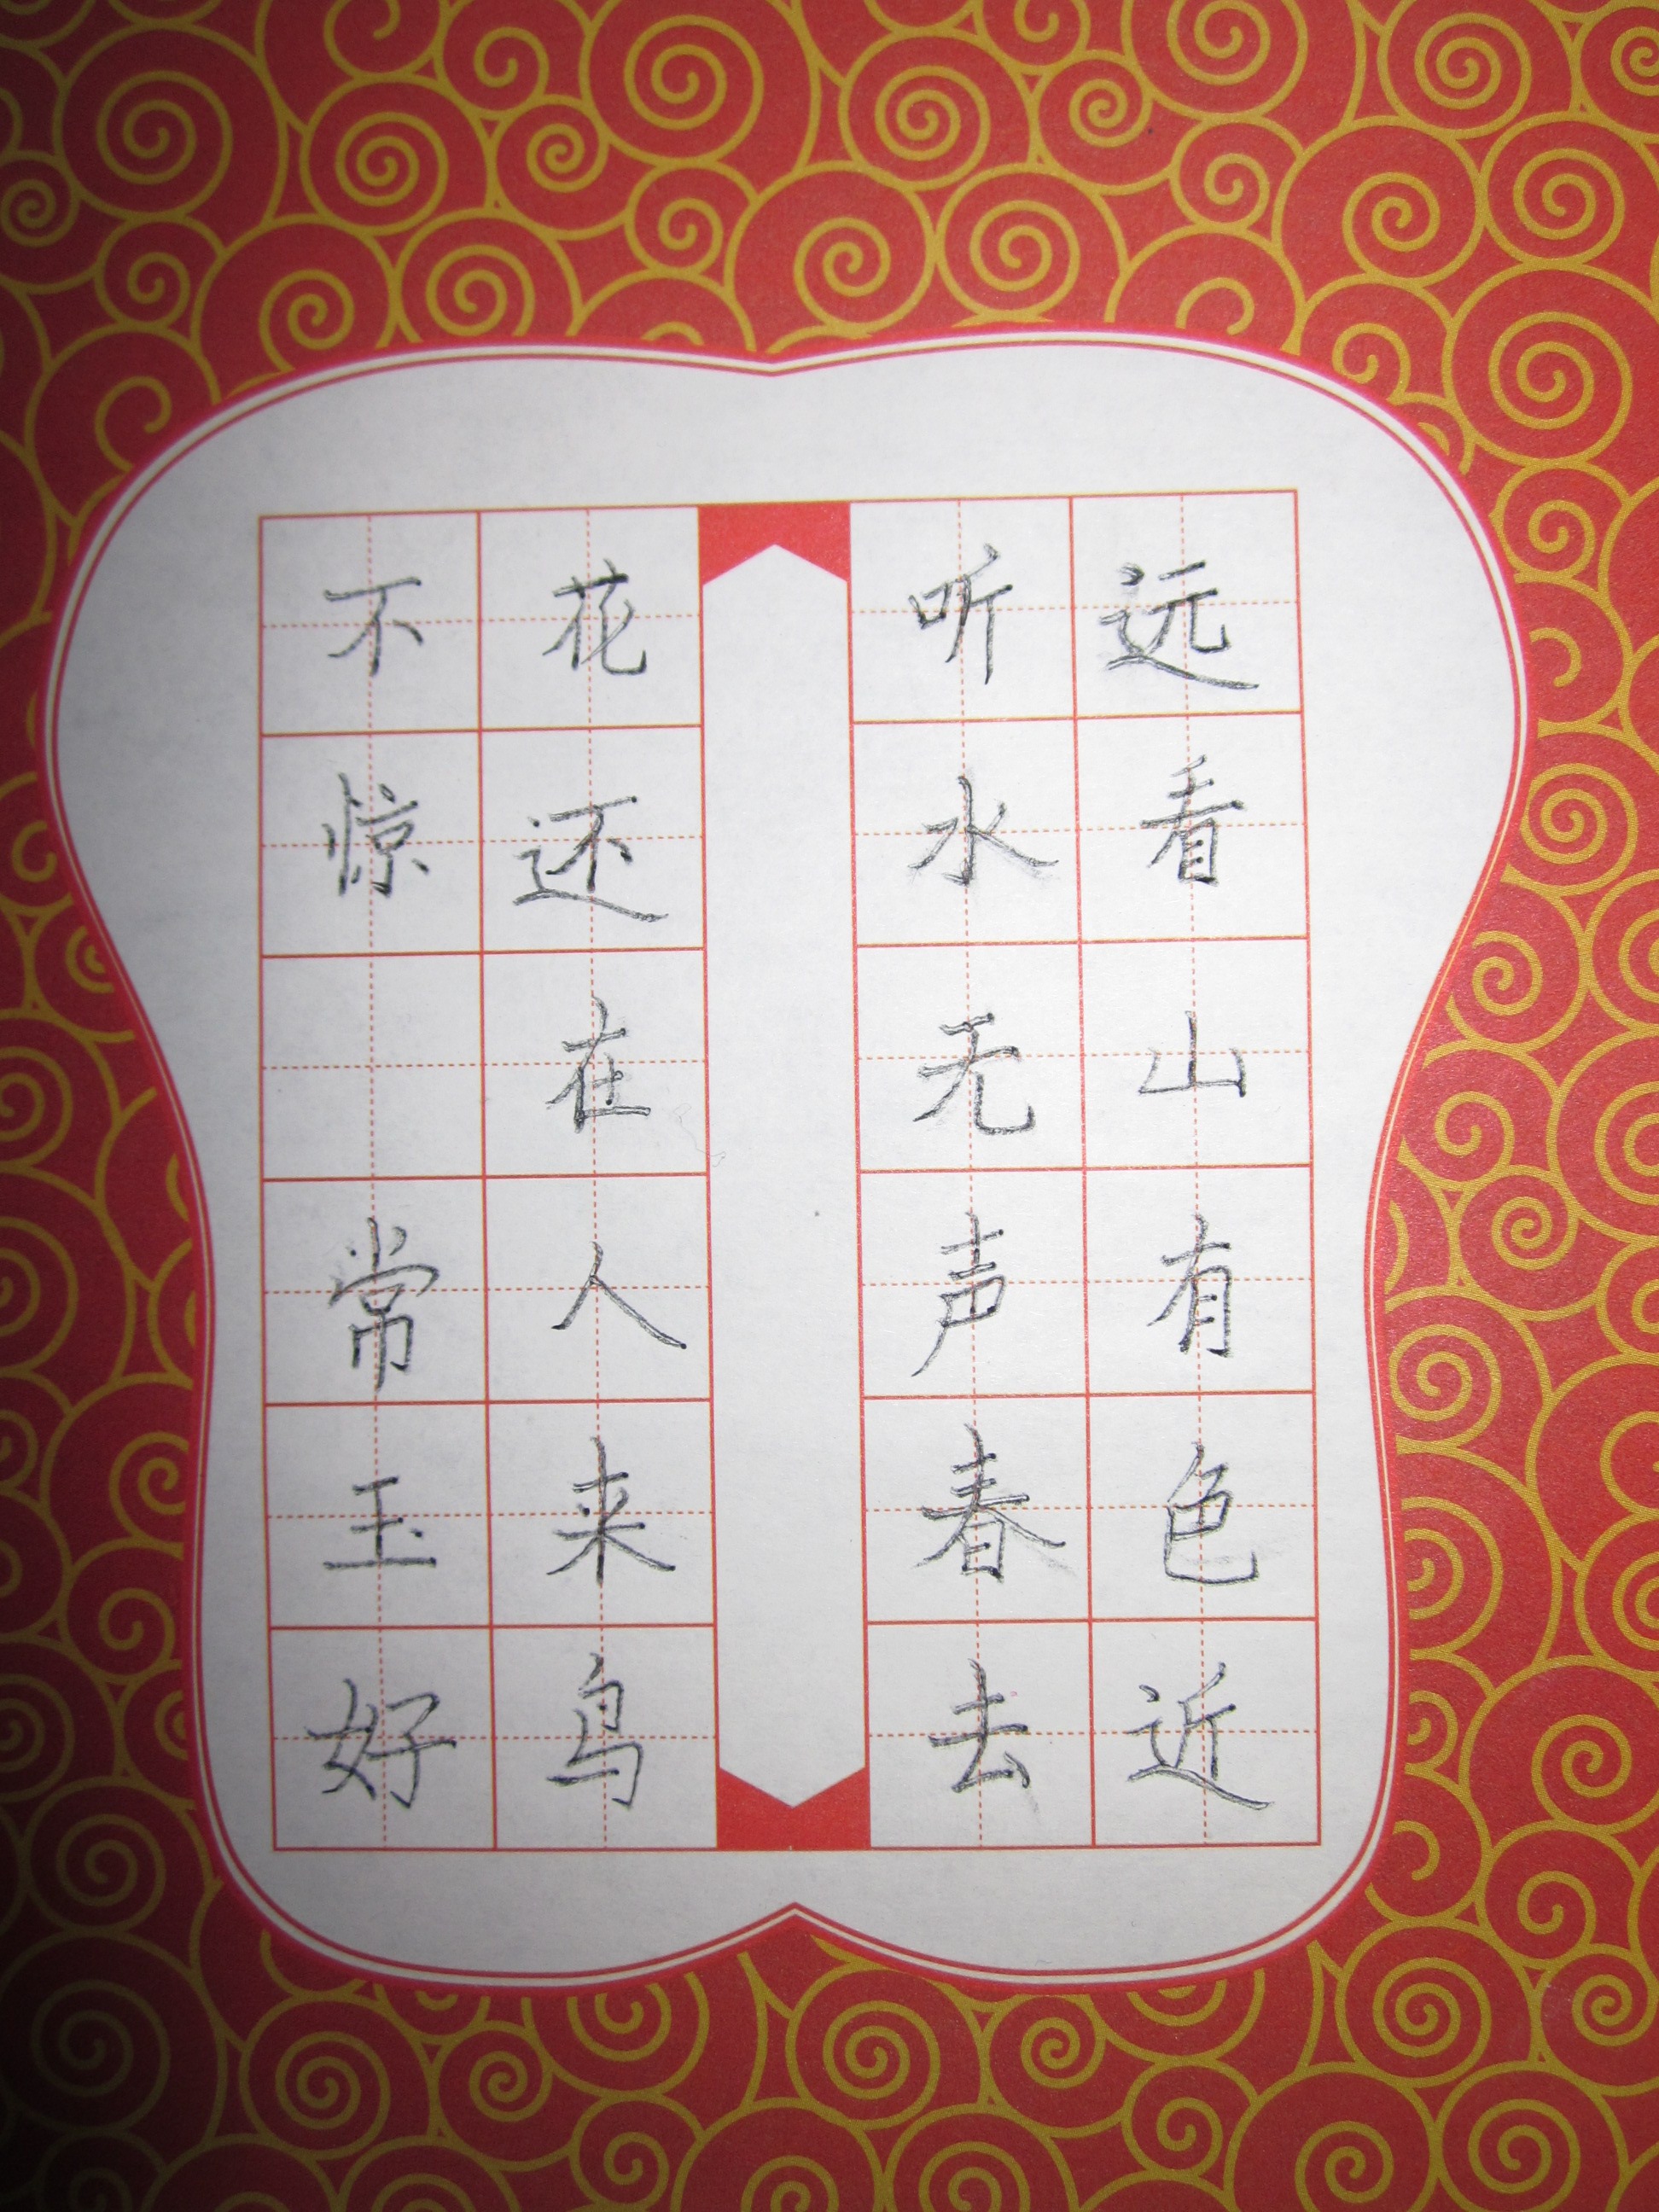 远看山有色近
听水无声春去
花还在人来鸟
不惊 常玉好